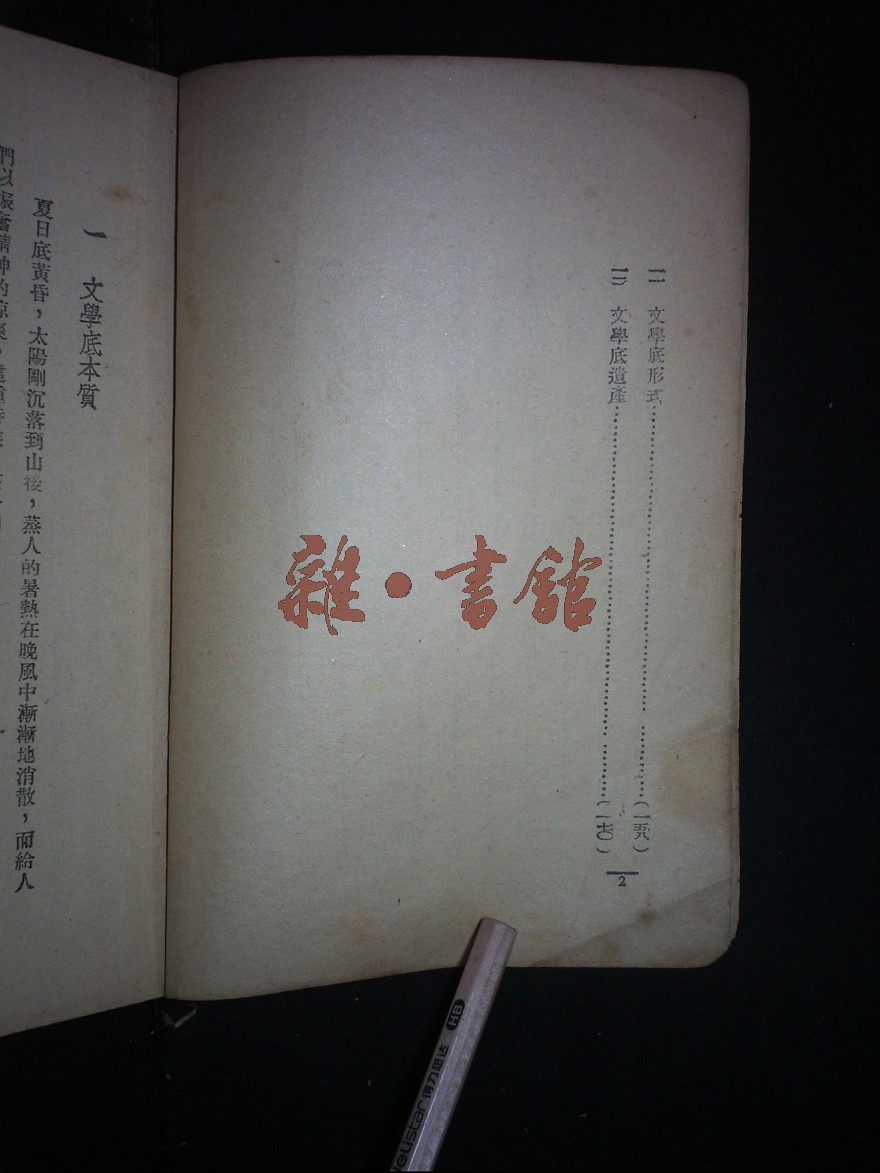 一一 文學底形式……(一五八)
一二 文學底遺產……(一七〇)
2
雜●書館
一 文學底本質
夏日底黃昏，太陽剛沉落到山後，蒸人的暑熱在晚風中漸漸地消散，而給人
們以振奮精神的涼爽，
HB
得力思达